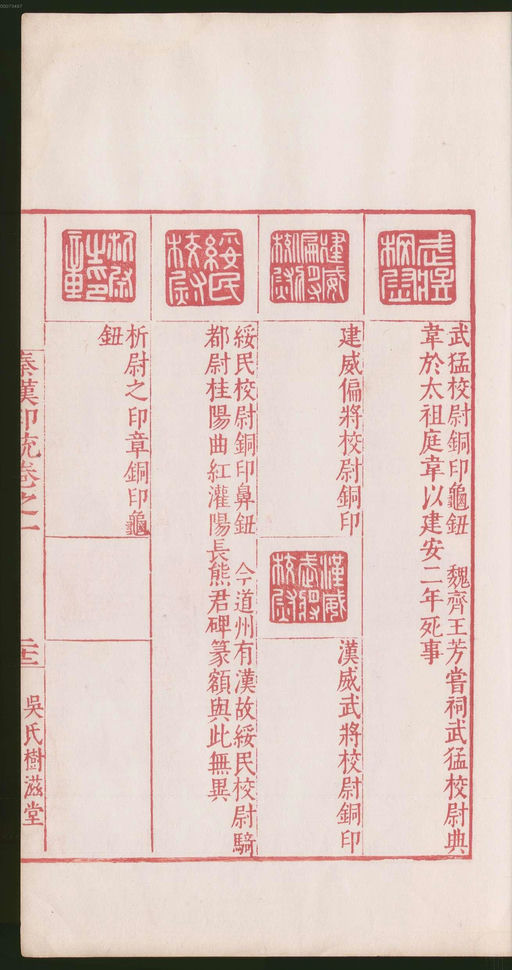 武猛校尉
武猛校尉銅印龜鈕 魏齊王芳嘗祠武猛校尉典
韋於太祖庭韋以建安二年死事
建威偏將校尉
建威偏將校尉銅印
漢威武將校尉
漢威武將校尉銅印
綏民校尉
綏民校尉銅印鼻鈕 今道州有漢故綏民校尉騎
都尉桂陽曲紅灌陽長熊君碑篆額與此無異
析尉之印章
析尉之印章銅印龜
鈕
秦漢印統卷之一
二十三
吳氏樹滋堂
00073487